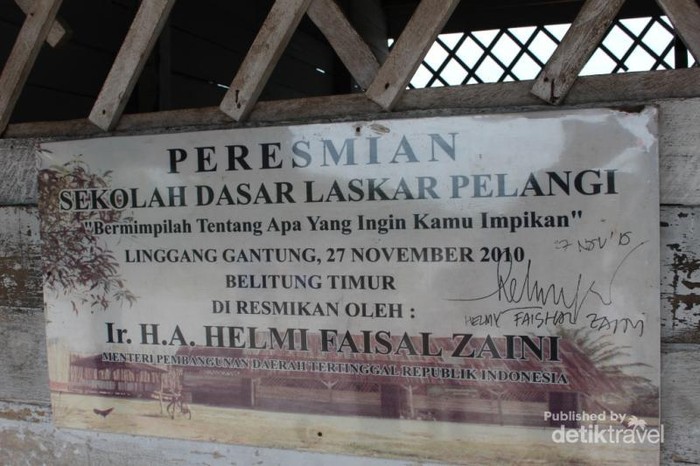 PERESMIAN
SEKOLAH DASAR LASKAR PELANGI
"Bermimpilah Tentang Apa Yang Ingin Kamu Impikan"
LINGGANG GANTUNG, 27 NOVEMBER 2010
BELITUNG TIMUR
DI RESMIKAN OLEH :
Ir. H.A. HELMI FAISAL ZAINI
MENTERI PEMBANGUNAN DAERAH TERTINGGAL REPUBLIK INDONESIA
HELMY FAISHAL ZAINI
Published by
detiktravel